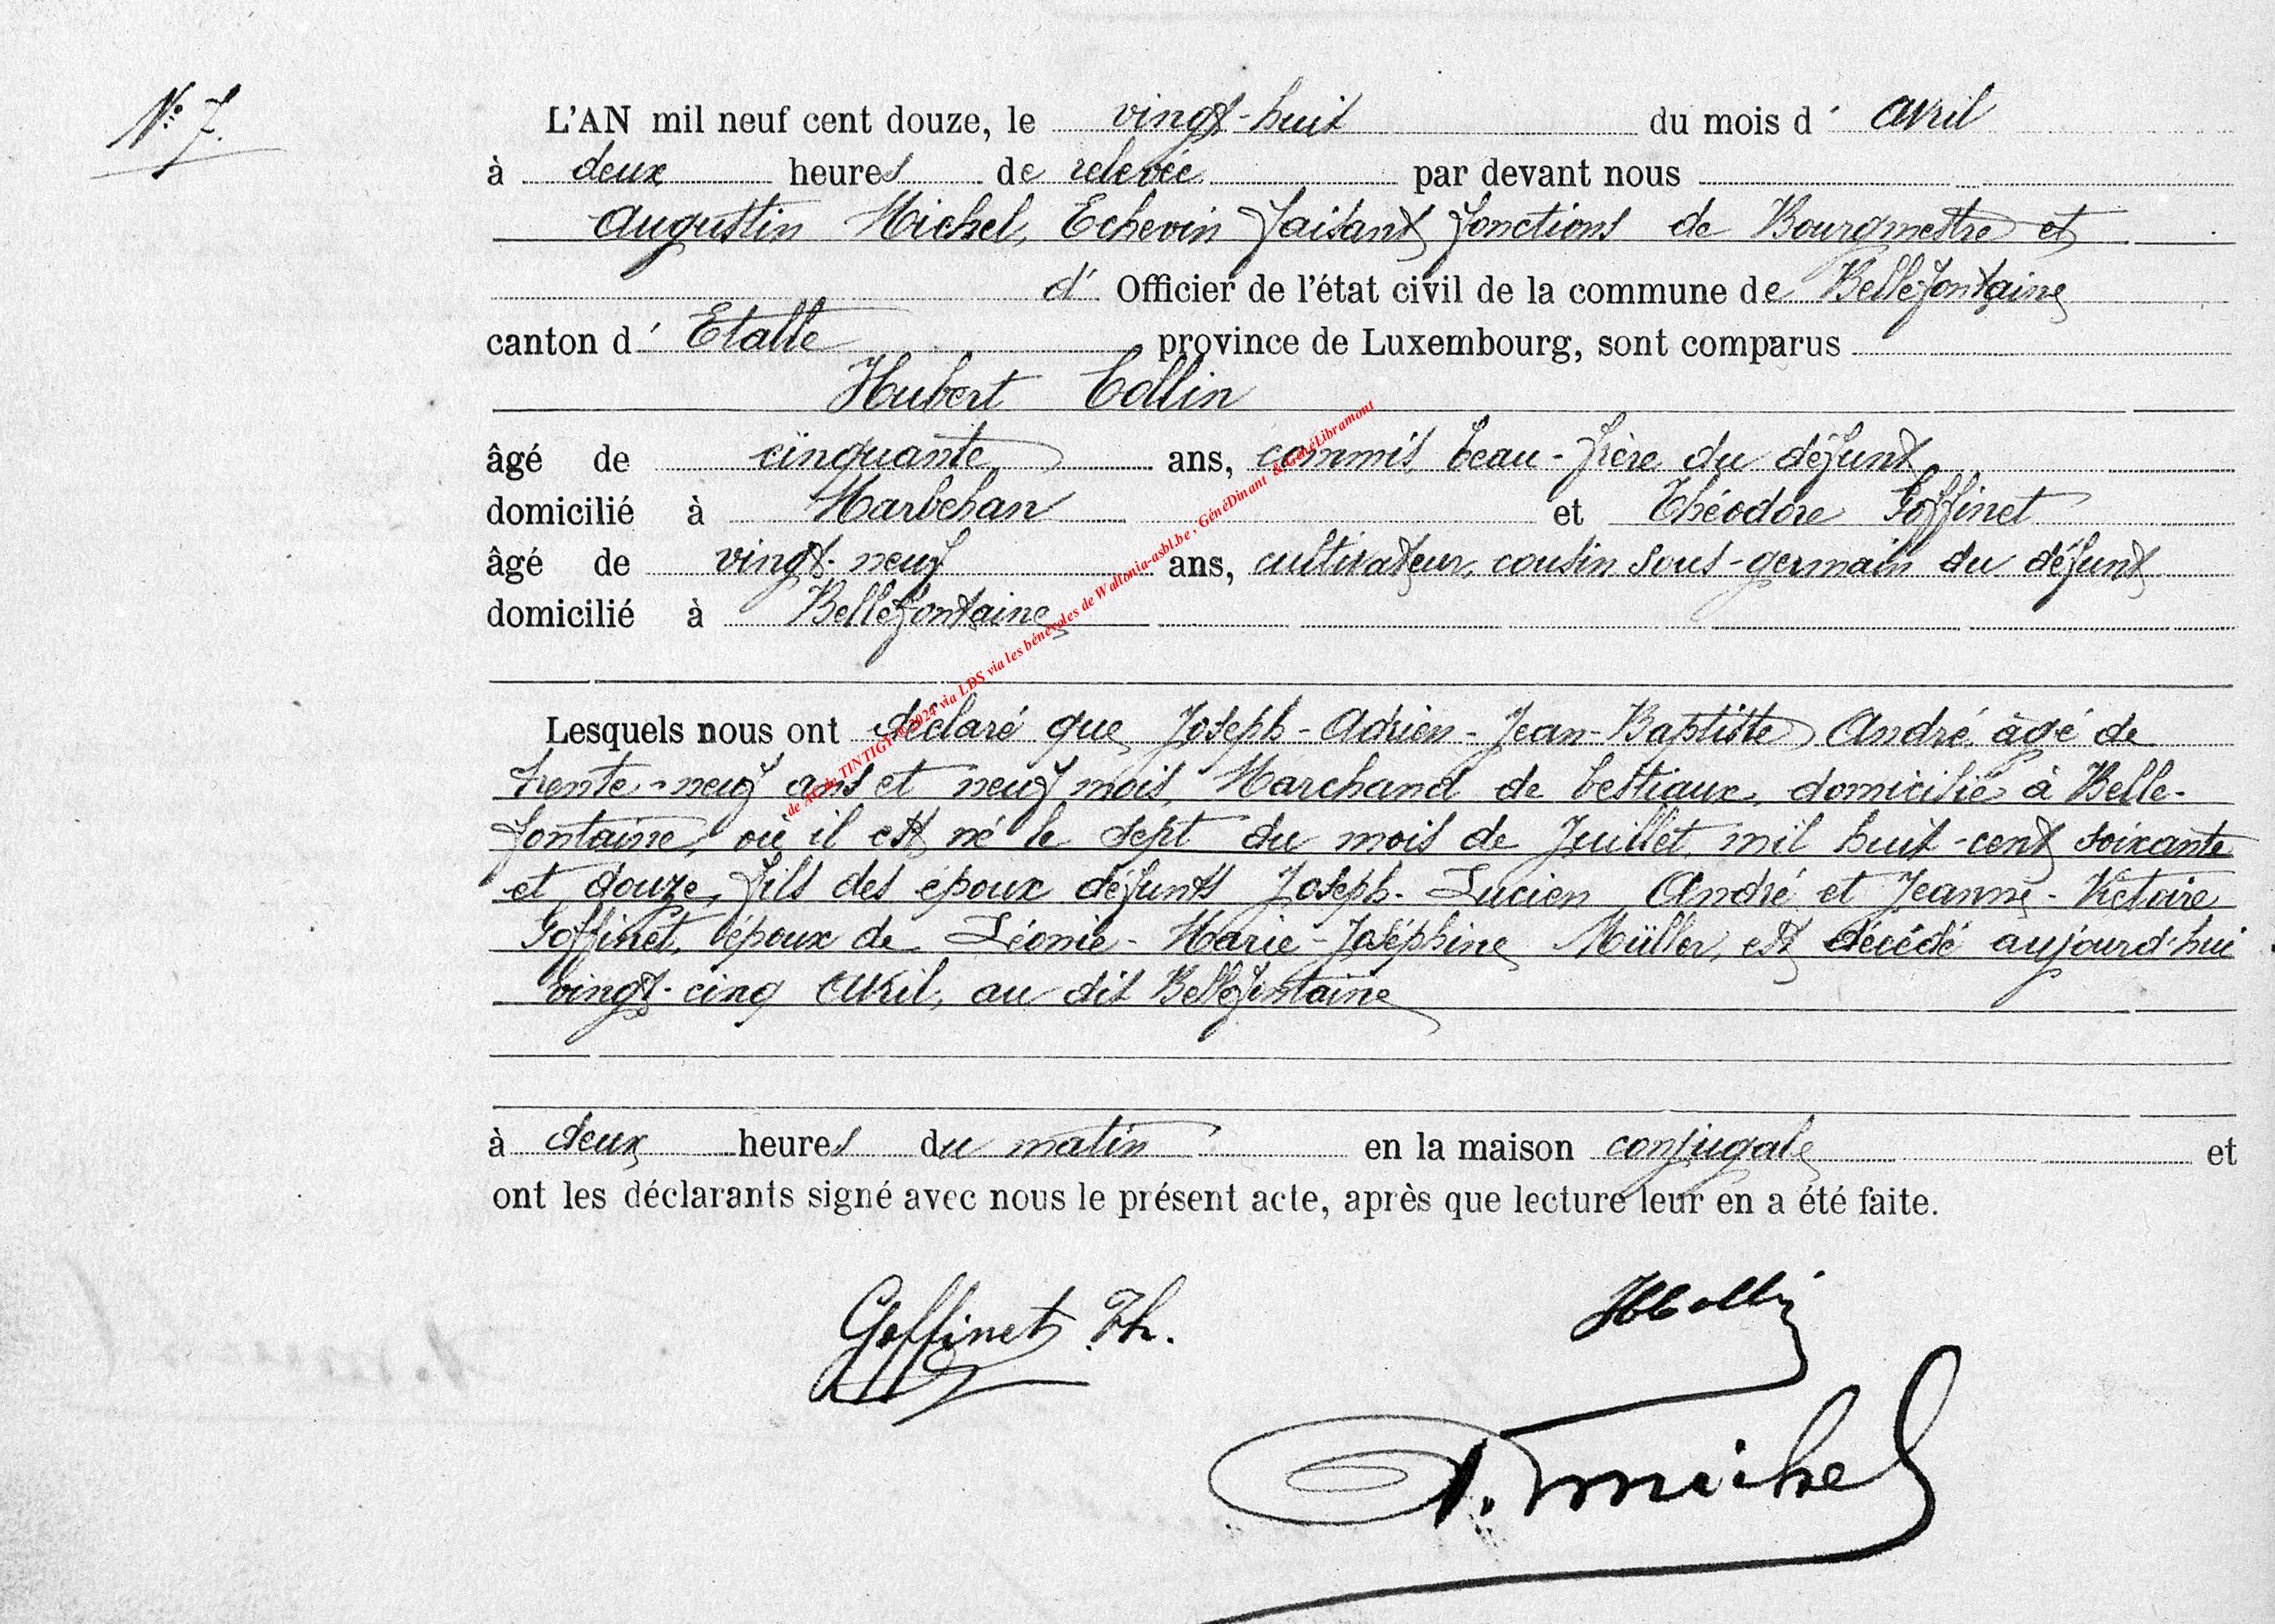 N° 7.
L'AN mil neuf cent douze, le vingt-huit du mois d' Avril
à deux heures de relevée par devant nous
Augustin Michel, Echevin faisant fonctions de Bourgmestre et
d' Officier de l'état civil de la commune de Bellefontaine
canton d' Etalle province de Luxembourg, sont comparus
Hubert Collin
âgé de cinquante ans, commis, beau-frère du défunt
domicilié à Marbehan et Théodore Goffinet
âgé de vingt-neuf ans, cultivateur, cousin sous-germain du défunt
domicilié à Bellefontaine
Lesquels nous ont déclaré que Joseph-Adrien-Jean-Baptiste André, âgé de
trente-neuf ans et neuf mois, Marchand de bestiaux, domicilié à Belle-
fontaine, où il est né le sept du mois de Juillet mil huit-cent soixante
et douze, fils des époux défunts Joseph-Lucien André et Jeanne-Victoire
Goffinet, époux de Léonie-Marie-Joséphine Müller, est décédé aujourd'hui
vingt-cinq Avril, au dit Bellefontaine
à deux heures du matin en la maison conjugale et
ont les déclarants signé avec nous le présent acte, après que lecture leur en a été faite.
Goffinet Th. HCollin
A. Michel
de AC de TINTIGY © 2024 via LDS via les bénévoles de Wallonia-asbl.be , GénéDinant & GénéLibramont